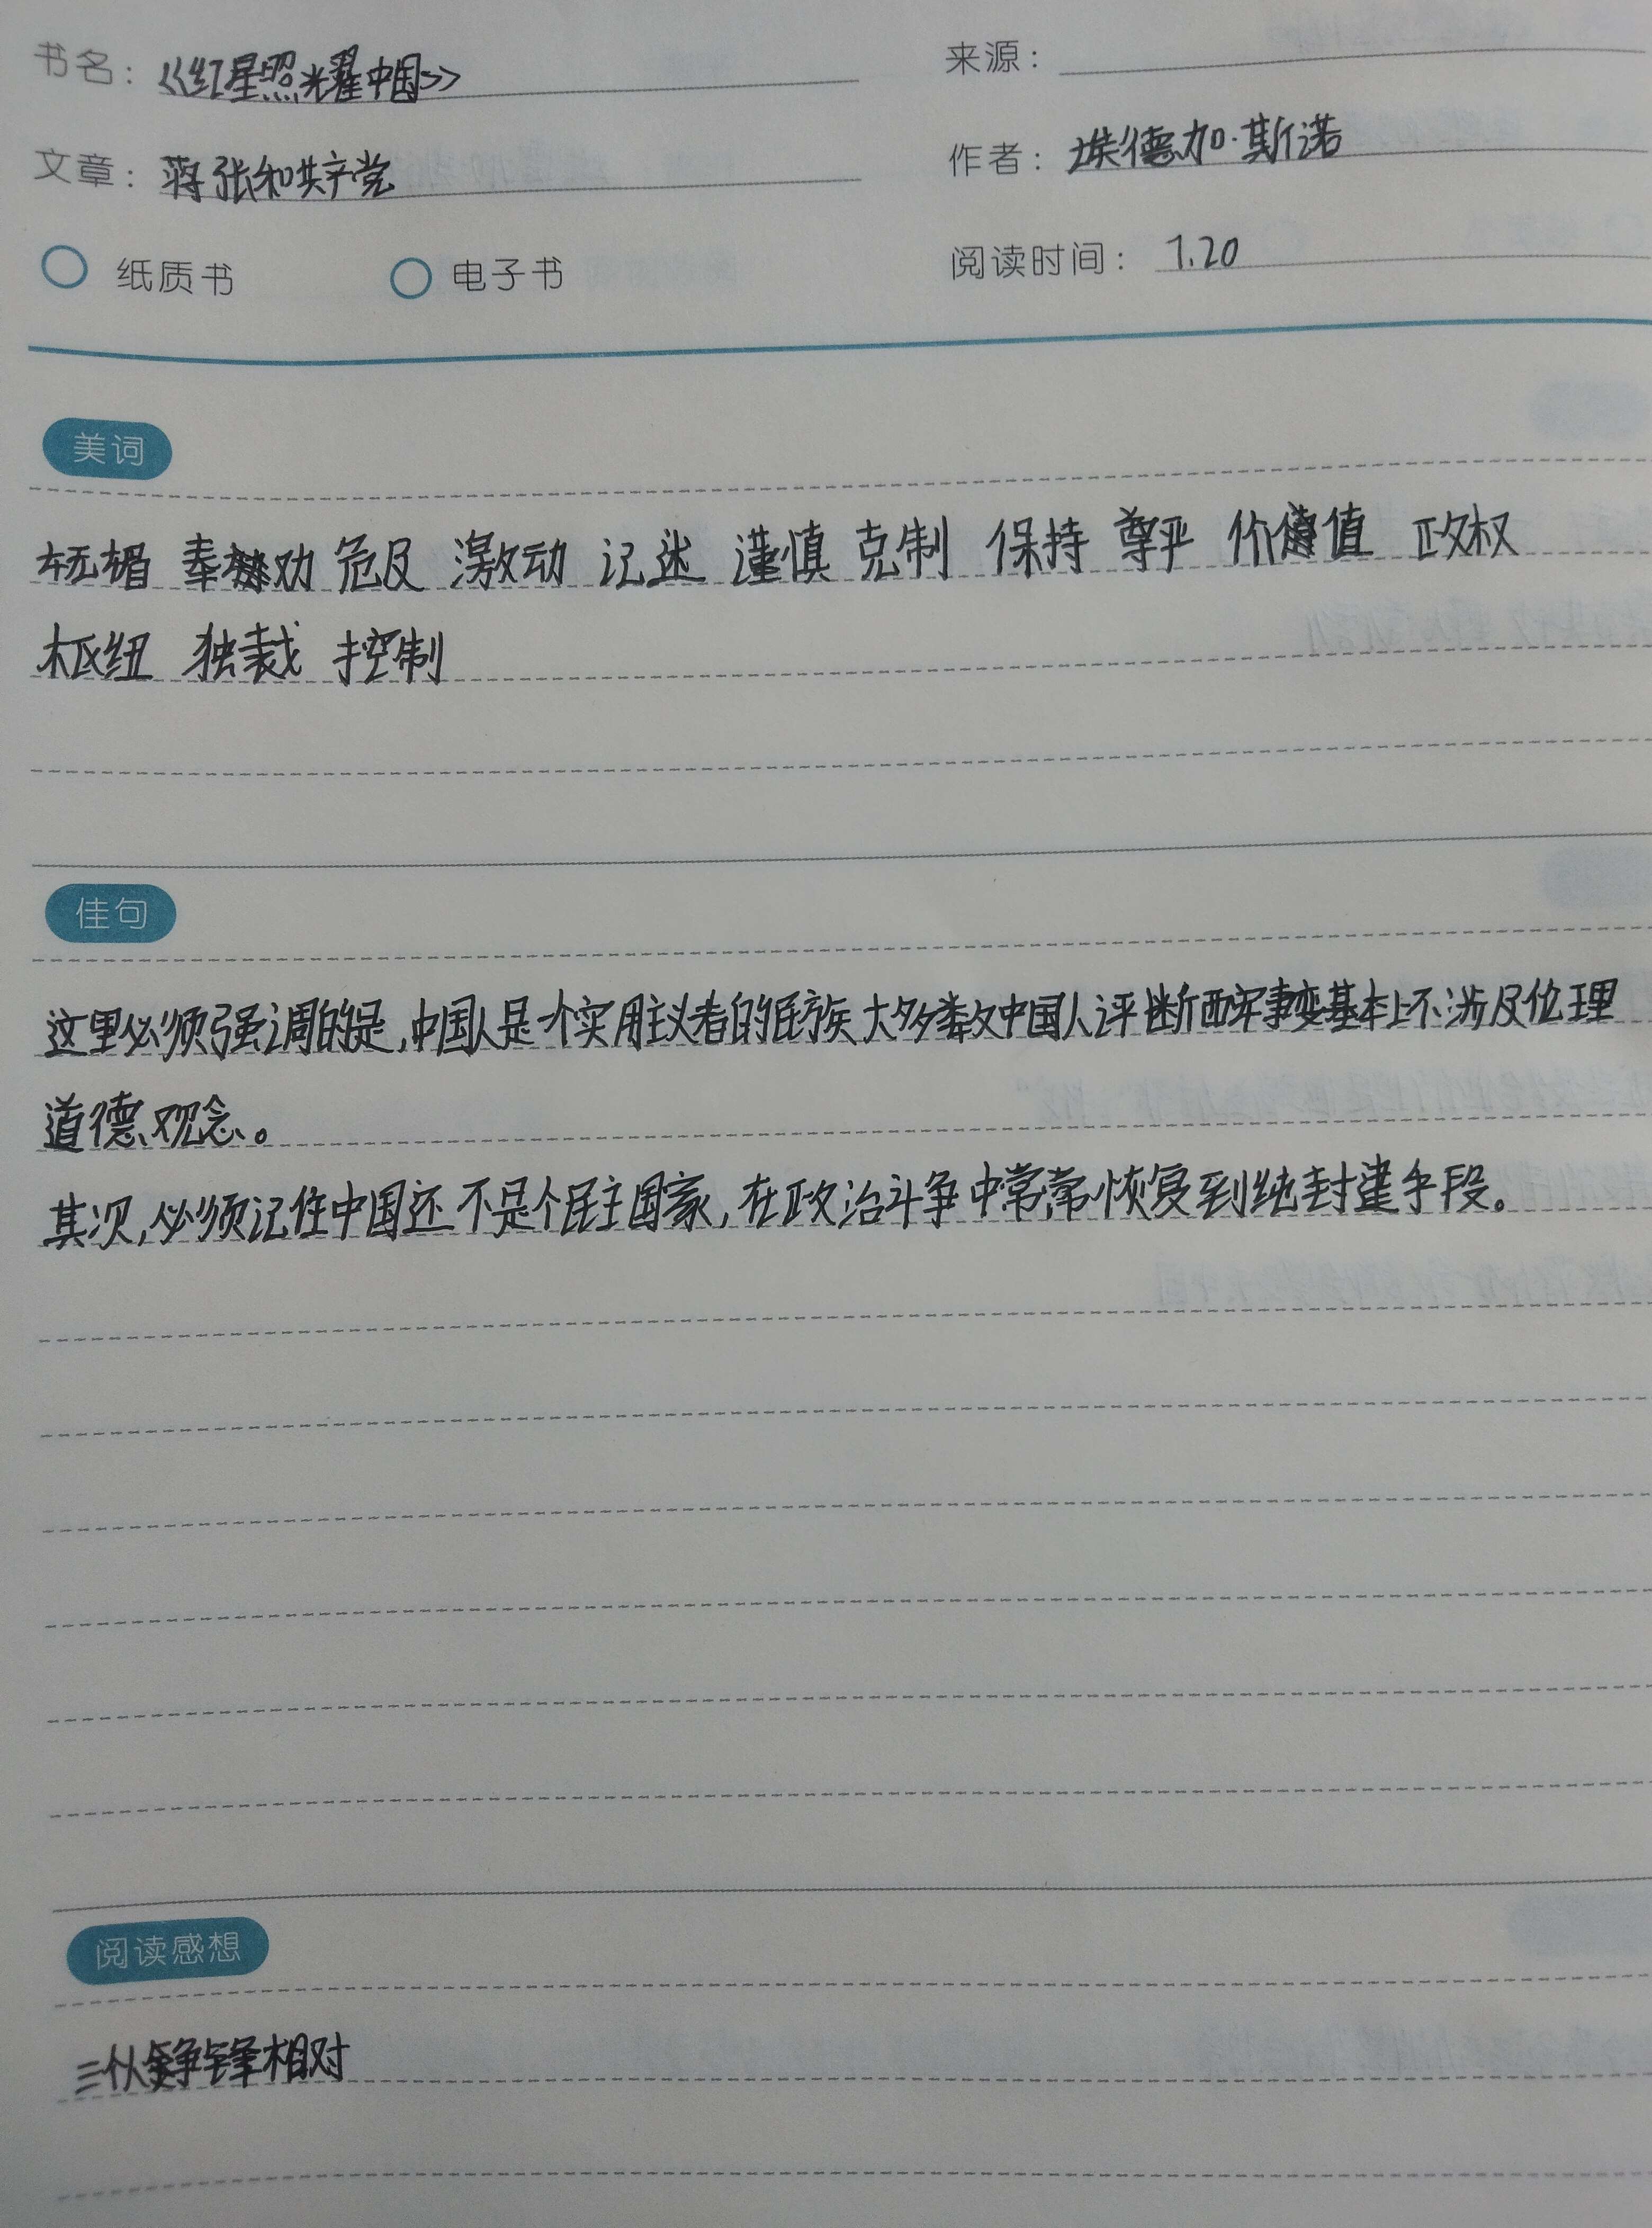 书名：《红星照耀中国》
来源：
文章：蒋张和共产党
作者：埃德加·斯诺
纸质书 电子书
阅读时间：1.20
美词
危及 激动 记述 谨慎 克制 保持 尊严 价值 政权
枢纽 独裁 控制
佳句
这里必须强调的是，中国人是一个实用主义者的民族大多数中国人评断西安事变基本上不涉及伦理
道德观念。
其次，必须记住中国还不是个民主国家，在政治斗争中常常恢复到纯封建手段。
阅读感想
锋相对